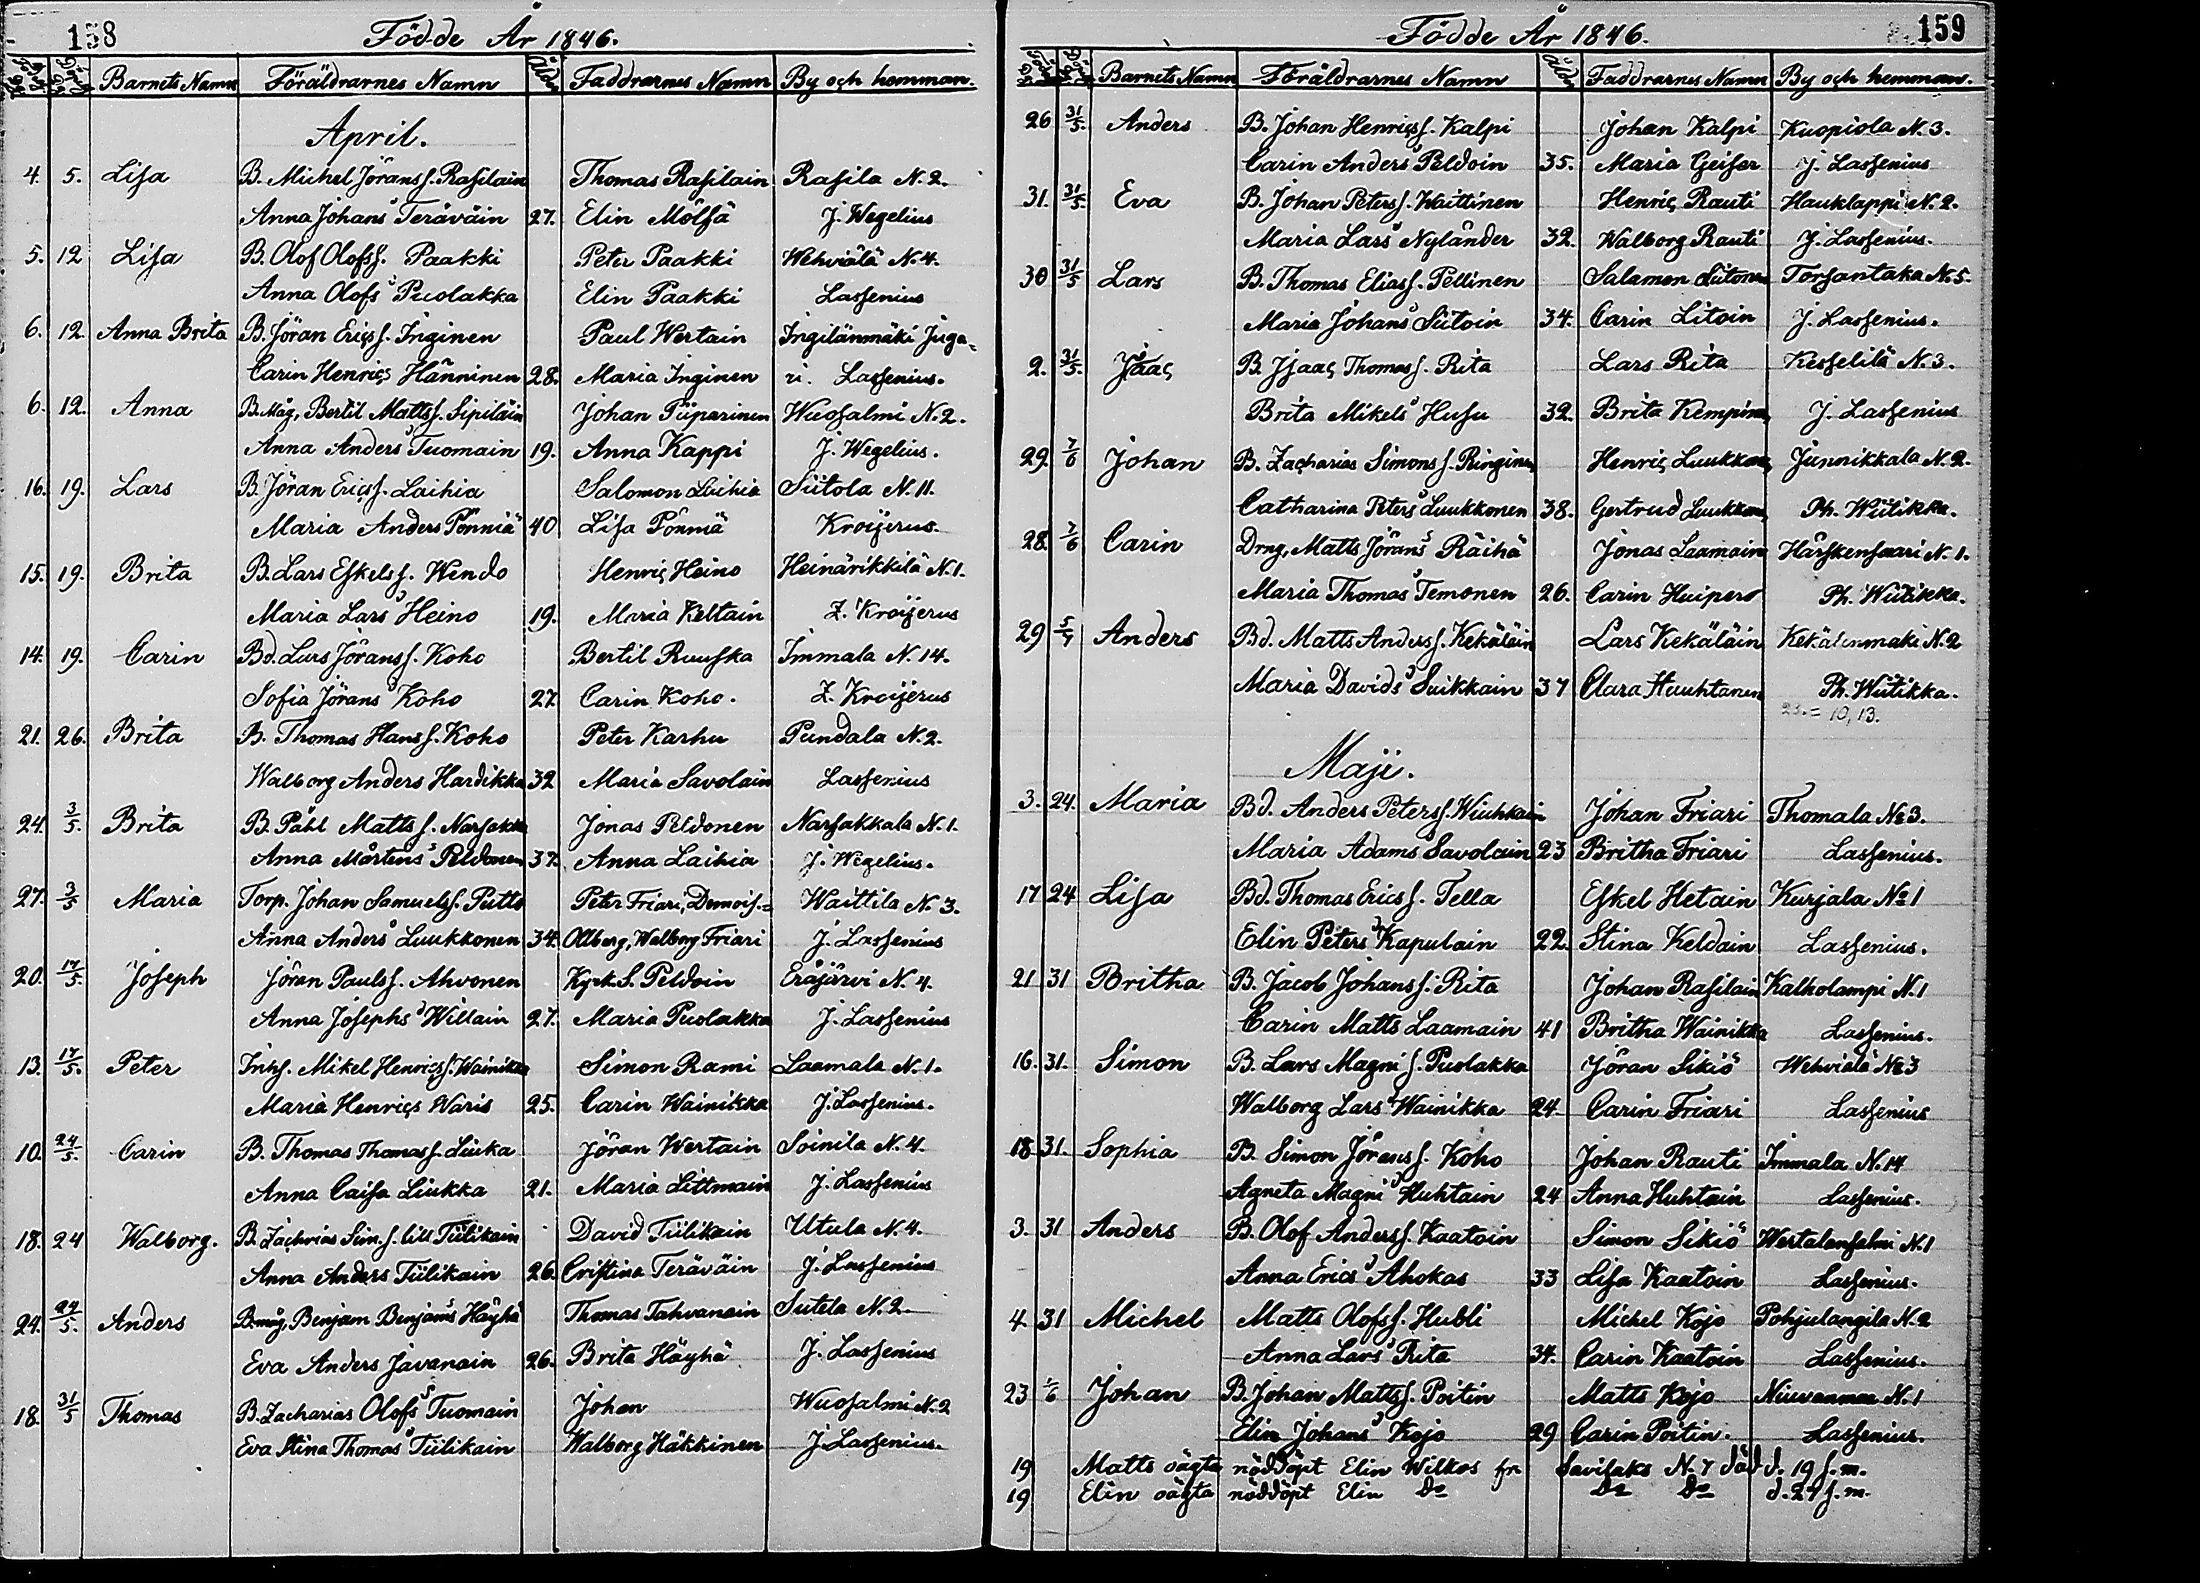 158
Födde År 1846.
Barnets Namn Föräldrarnes Namn Ålder Faddrarnes Namn By och hemman.
April.
4. 5. Lisa B. Michel Jöranss. Rasilain Thomas Rasilain Rasila N. 2.
Anna Johans Teräväin 27. Elin Mölsä J. Wegelius
5. 12 Lisa B. Olof Olofss. Paakki Peter Paakki Wehviälä N. 4.
Anna Olofs Puolakka Elin Paakki Lassenius
6. 12. Anna Brita B. Jöran Ericss. Inginen Paul Wertain Ingilänmäki Juga-
Carin Henrics Hänninen 28. Maria Inginen ri. Lassenius.
6. 12. Anna B. Måg, Bertil Mattss. Sipiläin Johan Piiparinen Wuosalmi N. 2.
Anna Anders Tuomain 19. Anna Kappi J. Wegelius.
16. 19. Lars B. Jöran Ericss. Laihia Salomon Laihia Siitola N. 11.
Maria Anders Pönniä 40 Lisa Pönniä Kroijerus.
15. 19. Brita B. Lars Eskelss. Wendo Henric Heino Heinärikkilä N. 1.
Maria Lars Heino 19. Maria Keltain Z. Kroijerus
14. 19. Carin Bd. Lars Jöranss. Koho Bertil Ruuska Immala N. 14.
Sofia Jörans Koho 27. Carin Koho. Z. Kroijerus
21. 26. Brita B. Thomas Hanss. Koho Peter Karhu Pundala N. 2.
Walborg Anders Hardikka 32 Maria Savolain Lassenius
24. 3/5. Brita B. Påhl Mattss. Narsakka Jonas Peldonen Narsakkala N. 1.
Anna Mårtens Peldonen 37. Anna Laihia J. Wegelius.
27. 3/5 Maria Torp. Johan Samuelss. Putto Peter Friari, Demois.= Waittila N. 3.
Anna Anders Luukkonen 34. Ollberg, Walborg Friari J. Lassenius
20. 17/5. Joseph Jöran Paulss. Ahvonen Kyrk. S. Peldoin Eräjärvi N. 4.
Anna Josephs Willain 27. Maria Puolakka J. Lassenius
13. 17/5. Peter Inhs. Mikel Henricss. Wainikka Simon Rami Laamala N. 1.
Maria Henrics Waris 25. Carin Wainikka J. Lassenius.
10. 24/5. Carin B. Thomas Thomass. Liuka Jöran Wertain Soinila N. 4.
Anna Caisa Liukka 21. Maria Littmain J. Lassenius
18. 24 Walborg. B. Zachrias Sim. s. lill Tiilikain David Tiilikain Utula N. 4.
Anna Anders Tiilikain 26. Cristina Teräväin J. Lassenius
24. 24/5. Anders B. måg, Benjam Benjams Häyhä Thomas Tahvanain Sutela N. 2.
Eva Anders Javanain 26. Brita Häyhä J. Lassenius
18. 31/5 Thomas B. Zacharias Olofs Tuomain Johan Wuosalmi N. 2
Eva Stina Thomas Tiilikain Walborg Häkkinen J. Lassenius.
159
Födde År 1846.
Barnets Namn Föräldrarnes Namn Ålder Faddrarnes Namn By och hemman.
26 31/5. Anders B. Johan Henricss. Kalpi Johan Kalpi Kuopiola N. 3.
Carin Anders Peldoin 35. Maria Geisar J. Lassenius
31. 31/5. Eva B. Johan Peterss. Waittinen Henric Rauti Hauklappi N. 2.
Maria Lars Nyländer 32. Walborg Rauti J. Lassenius.
30 31/5 Lars B. Thomas Eliass. Pellinen Salamon Torsantaka N. 5.
Maria Johans Siitoin 34. Carin Litoin J. Lassenius.
2. 31/5. Isaac B. Isaac Thomass. Rita Lars Rita Kesselilä N. 3.
Brita Mikels Husu 32. Brita J. Lassenius
29. 7/6 Johan B. Zacharias Simonss. Ringinen Henric Luukkonen Junnikkala N. 2.
Catharina Peters Luukkonen 38. Gertrud Luukkonen Ph. Wiitikka.
28. 7/6 Carin Drng, Matts Jörans Räihä Jonas Laamain Härskensaari N. 1.
Maria Thomas Temonen 26. Carin Huipero Ph. Wiitikka.
29 5/7 Anders Bd. Matts Anderss. Kekäläin Lars Kekäläin Kekälinmäki N. 2
Maria Davids Suikkain 37 Clara Huuhtanen Ph. Wiitikka.
23. = 10, 13.
Maji.
3. 24. Maria Bd. Anders Peterss. Wiuhkain Johan Friari Thomala No 3.
Maria Adams Savolain 23 Britha Friari Lassenius.
17 24 Lisa Bd. Thomas Ericss. Tella Eskel Hetain Kurjala No 1
Elin Peters Kapulain 22. Stina Keldain Lassenius.
21 31 Britha B. Jacob Johanss. Rita Johan Rasilain Kalholampi N. 1
Carin Matts Laamain 41 Britha Wainikka Lassenius.
16. 31. Simon B. Lars Magni s. Puolakka Jöran Sikiö Wehviälä No 3
Walborg Lars Wainikka 24. Carin Friari Lassenius
18 31. Sophia B. Simon Jöranss. Koho Johan Rauti Immala N. 14
Agneta Magni Huhtain 24 Anna Huhtain Lassenius.
3. 31 Anders B. Olof Anderss. Kaatoin Simon Sikiö Wertalansalmi N. 1
Anna Erics Ahokas 33 Lisa Kaatoin Lassenius.
4 31 Michel Matts Olofss. Hubli Michel Kojo Pohjulangila N. 2
Anna Lars Rita 34. Carin Kaatoin Lassenius.
23 /6 Johan B. Johan Mattss. Poitin Matts Kojo Niuvanmaa N. 1
Elin Johans Kojo 29 Carin Poitin. Lassenius.
19 Matts oägta nöddöpt Elin Wilkos fr. Savilaks N. 7 död d. 19 s. m.
19 Elin oägta nöddöpt Elin Do Do Do d. 27 s. m.